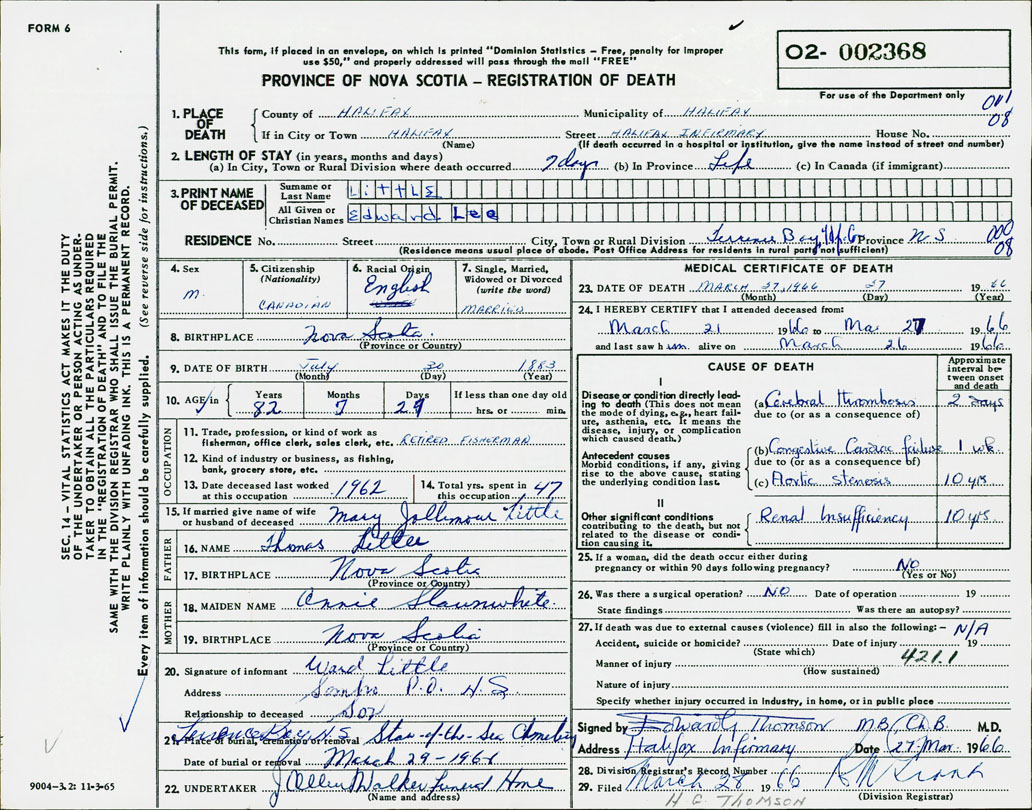 FORM 6
This form, if placed in an envelope, on which is printed "Dominion Statistics – Free, penalty for improper
use $50," and properly addressed will pass through the mail "FREE"
PROVINCE OF NOVA SCOTIA – REGISTRATION OF DEATH
02- 002368
For use of the Department only
001
08
1. PLACE OF DEATH
County of HALIFAX Municipality of HALIFAX
If in City or Town HALIFAX Street HALIFAX INFIRMARY House No.
(Name) (If death occurred in a hospital or institution, give the name instead of street and number)
2. LENGTH OF STAY (in years, months and days)
(a) In City, Town or Rural Division where death occurred 7 days (b) In Province Life (c) In Canada (if immigrant)
3. PRINT NAME OF DECEASED
Surname or Last Name LittLE
All Given or Christian Names Edward Lee
RESIDENCE No. Street City, Town or Rural Division Terence Bay Province N S. 000
08
(Residence means usual place of abode. Post Office Address for residents in rural parts not sufficient)
4. Sex
M.
5. Citizenship
(Nationality)
CANADIAN
6. Racial Origin
English
7. Single, Married,
Widowed or Divorced
(write the word)
MARRIED
8. BIRTHPLACE Nova Scotia
(Province or Country)
9. DATE OF BIRTH July 30 1883
(Month) (Day) (Year)
10. AGE in
Years Months Days If less than one day old
82 7 hrs. or min.
OCCUPATION
11. Trade, profession, or kind of work as
fisherman, office clerk, sales clerk, etc. RETIRED FISHERMAN
12. Kind of industry or business, as fishing,
bank, grocery store, etc.
13. Date deceased last worked
at this occupation 1962
14. Total yrs. spent in
this occupation 47
15. If married give name of wife
or husband of deceased Mary Jollimour Little
FATHER
16. NAME Thomas
17. BIRTHPLACE Nova Scotia
(Province or Country)
MOTHER
18. MAIDEN NAME Annie Slaunwhite
19. BIRTHPLACE Nova Scotia
(Province or Country)
20. Signature of informant Ward Little
Address Sambro P.O. N.S.
Relationship to deceased Son
Terrence Bay N.S.
21. Place of burial, cremation or removal Star-of-the-Sea Cemetery
Date of burial or removal March 29-1966
22. UNDERTAKER J Allen Walker Funeral Home
(Name and address)
MEDICAL CERTIFICATE OF DEATH
23. DATE OF DEATH MARCH 27, 1966 27 1966
(Month) (Day) (Year)
24. I HEREBY CERTIFY that I attended deceased from:
March 21 1966 to Mar 27 1966
and last saw him alive on March 26 1966
CAUSE OF DEATH
Approximate
interval be-
tween onset
and death
I
Disease or condition directly lead-
ing to death (This does not mean
the mode of dying, e.g., heart fail-
ure, asthenia, etc. It means the
disease, injury, or complication
which caused death.)
(a) Cerebral thrombosis 2 days
due to (or as a consequence of)
Antecedent causes
Morbid conditions, if any, giving
rise to the above cause, stating
the underlying condition last.
(b) Congestive Cardiac failure 1 wk
due to (or as a consequence of)
(c) Aortic stenosis 10 yrs
II
Other significant conditions
contributing to the death, but not
related to the disease or condi-
tion causing it.
Renal Insufficiency 10 yrs.
25. If a woman, did the death occur either during
pregnancy or within 90 days following pregnancy? NO
(Yes or No)
26. Was there a surgical operation? NO Date of operation 19
State findings Was there an autopsy?
27. If death was due to external causes (violence) fill in also the following:– N/A
Accident, suicide or homicide? Date of injury 19
(State which) 421.1
Manner of injury
(How sustained)
Nature of injury
Specify whether injury occurred in Industry, in home, or in public place
Signed by Edward G Thomson M.B., Ch.B. M.D.
Address Halifax Infirmary Date 27 Mar. 1966
28. Division Registrar's Record Number
29. Filed March 28 1966
(Division Registrar)
H G THOMSON
SEC. 14 – VITAL STATISTICS ACT MAKES IT THE DUTY
OF THE UNDERTAKER OR PERSON ACTING AS UNDER-
TAKER TO OBTAIN ALL THE PARTICULARS REQUIRED
IN THE "REGISTRATION OF DEATH" AND TO FILE THE
SAME WITH THE DIVISION REGISTRAR WHO SHALL ISSUE THE BURIAL PERMIT.
WRITE PLAINLY WITH UNFADING INK. THIS IS A PERMANENT RECORD.
Every item of information should be carefully supplied. (See reverse side for instructions.)
9004–3.2: 11-3-65